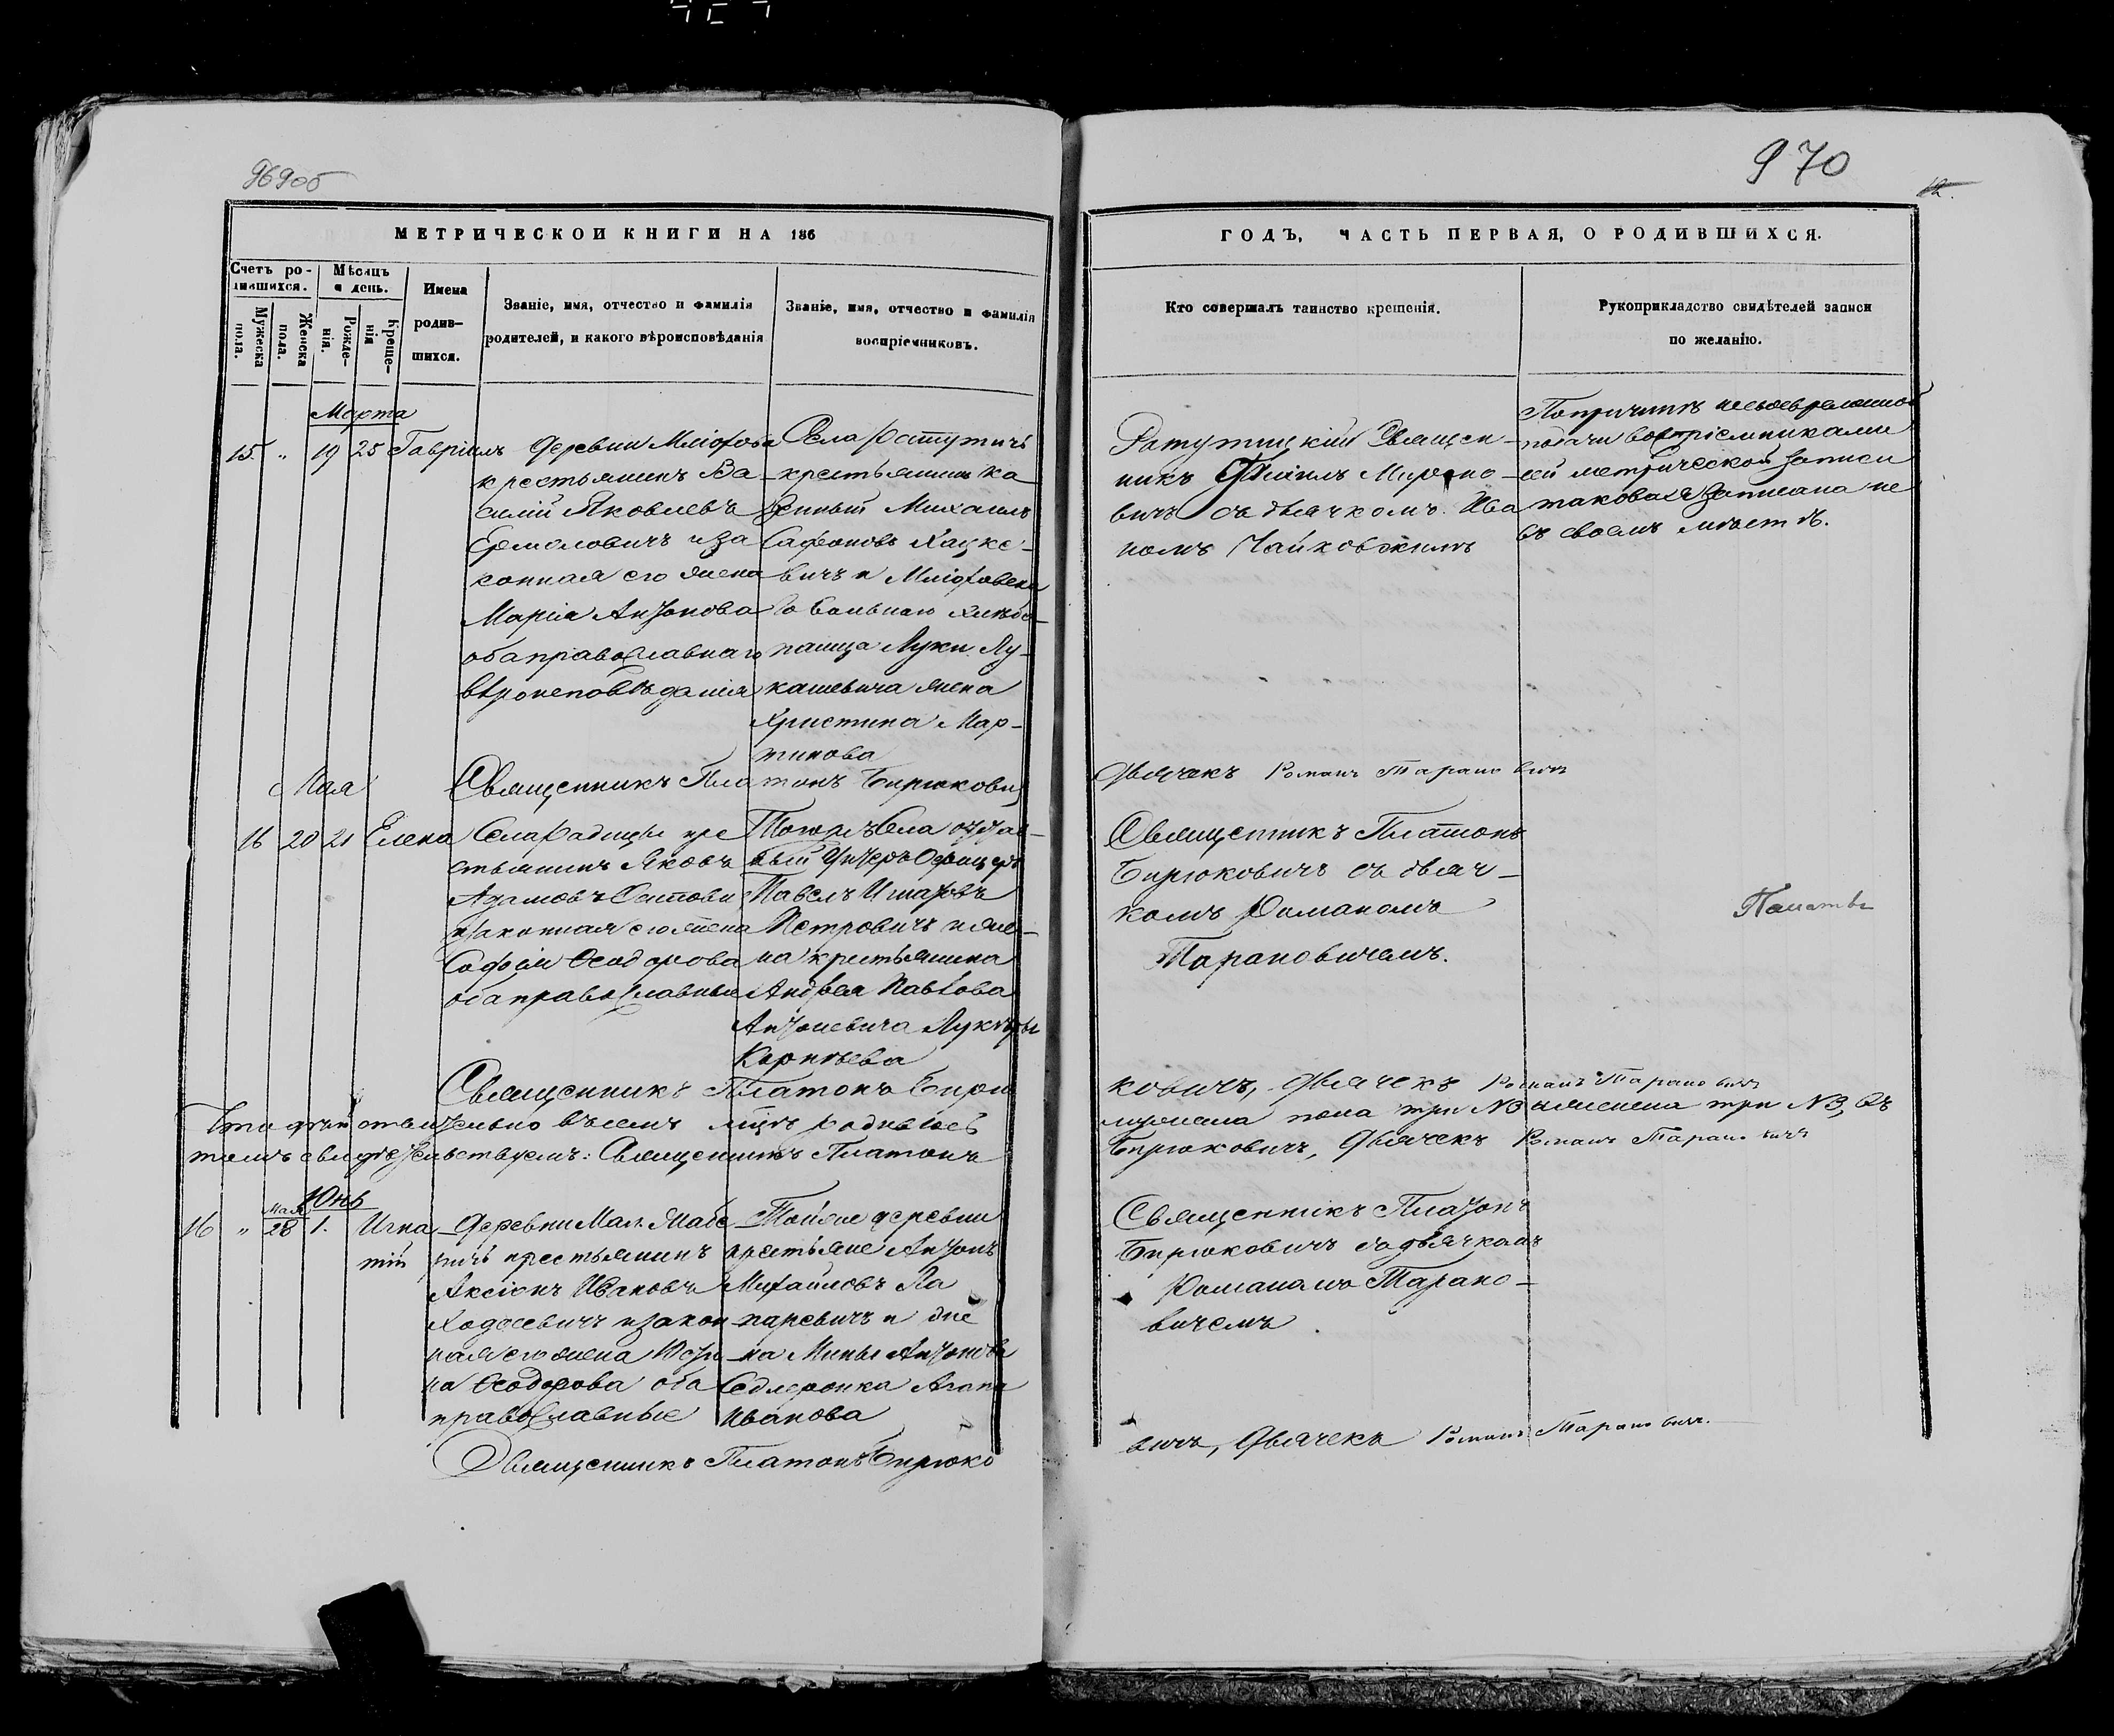 969об
970
МЕТРИЧЕСКОЙ КНИГИ НА 186
ГОДЪ, ЧАСТЬ ПЕРВАЯ, О РОДИВШИХСЯ.
Счетъ родившихся.
Мужеска пола.
Женска пола.
Мѣсяцъ и день.
Рожденія.
Крещенія
Имена родившихся.
Званіе, имя, отчество и фамилія
родителей, и какого вѣроисповѣданія
Званіе, имя, отчество и фамилія
воспріемниковъ.
Кто совершалъ таинство крещенія.
Рукоприкладство свидѣтелей записи
по желанію.
Марта
15. " 19 25 Гавріилъ
Деревни
крестьянинъ Ва-
силій Яковлевъ
Ермоловичъ и за
конная его жена
Марія Антонова
оба православнаго
вѣроисповѣданія
Села Ратутичъ
крестьянинъ ка
зенный Михаилъ
Сафоновъ Хацке-
вичъ и
вольнаго хлѣбо-
пашца Луки Лу-
кашевича жена
Христина Мар-
тинова
Ратутицкій Священ-
никъ Мироно-
вичъ съ дьячкомъ Ива
номъ Чайковскимъ
По причинѣ несвоевременной
подачи воспріемниками
сей метрической записи
таковая записана не
въ своемъ мѣстѣ.
Священникъ Платонъ Бирюкович
Дьячекъ Романъ Тарановичъ
Мая
16 20 21 Елена
Села Радищи кре
стьянинъ Яковъ
Адамовъ
и законная его жена
Софія Ѳеодорова
оба православные
Тогожъ Села отстав-
ный Унтеръ Офицеръ
Павелъ Игнатовъ
Петровичъ и же-
на крестьянина
Андрея Павлова
Антоневича Лукерья
Корнѣева
Священникъ Платонъ
Бирюковичъ съ дьяч-
комъ Романомъ
Тарановичемъ.
Священникъ Платонъ Бирю
ковичъ, Дьячекъ Романъ Тарановичъ
Что дѣйствительно въ семъ мцѣ родилось
мужеска пола три №3 и женска три №3, въ
томъ свидѣтельствуемъ: Священникъ Платонъ
Бирюковичъ, Дьячекъ Романъ Тарановичъ
Юнь
Мая
16 " 28 1. Игна
тій
Деревни Мал.
крестьянинъ
Аксіонъ Ивановъ
Ходосевичъ и закон
ная его жена Юсти
на Ѳеодорова оба
православные
Тойже деревни
крестьяне Антонъ
Михайловъ Ла
заревичъ и жена
Мины Антонова
Агапа
Иванова
Священникъ Платонъ
Бирюковичъ съ дьячкомъ
Романомъ Тарано-
вичемъ
Священникъ Платонъ Бирюко
вичъ, Дьячекъ Романъ Тарановичъ.